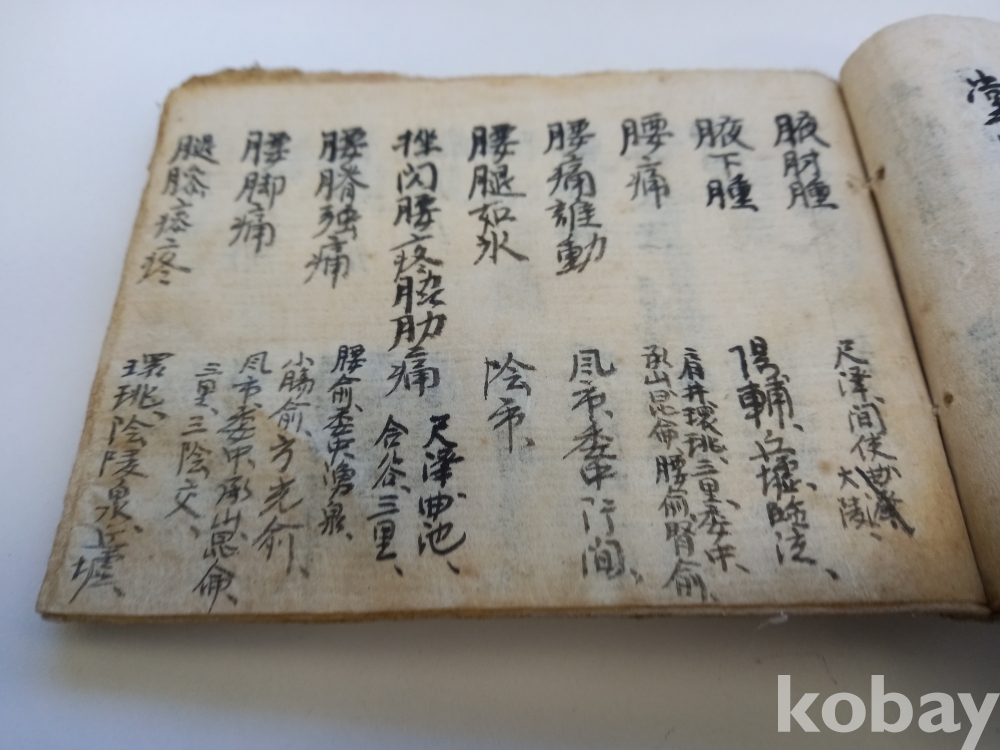 堂
腋肘腫
尺澤、間使、曲
大陵、
腋下腫
陽輔、丘墟、臨泣、
腰痛
肩井、環珧、三里、委中、
承山、昆侖、腰俞、腎俞、
腰痛誰動
風市、委中、行間、
腰腿如氷
陰市、
挫閃腰疼脇肋痛
尺澤、曲池、
合谷、三里、
腰膂强痛
腰俞、委中、湧泉、
小腸俞、方光俞、
腰脚痛
風市、委中、承山、崑侖、
三里、三陰交、
腿膝疼
環珧、陰陵泉、丘墟、
kobay